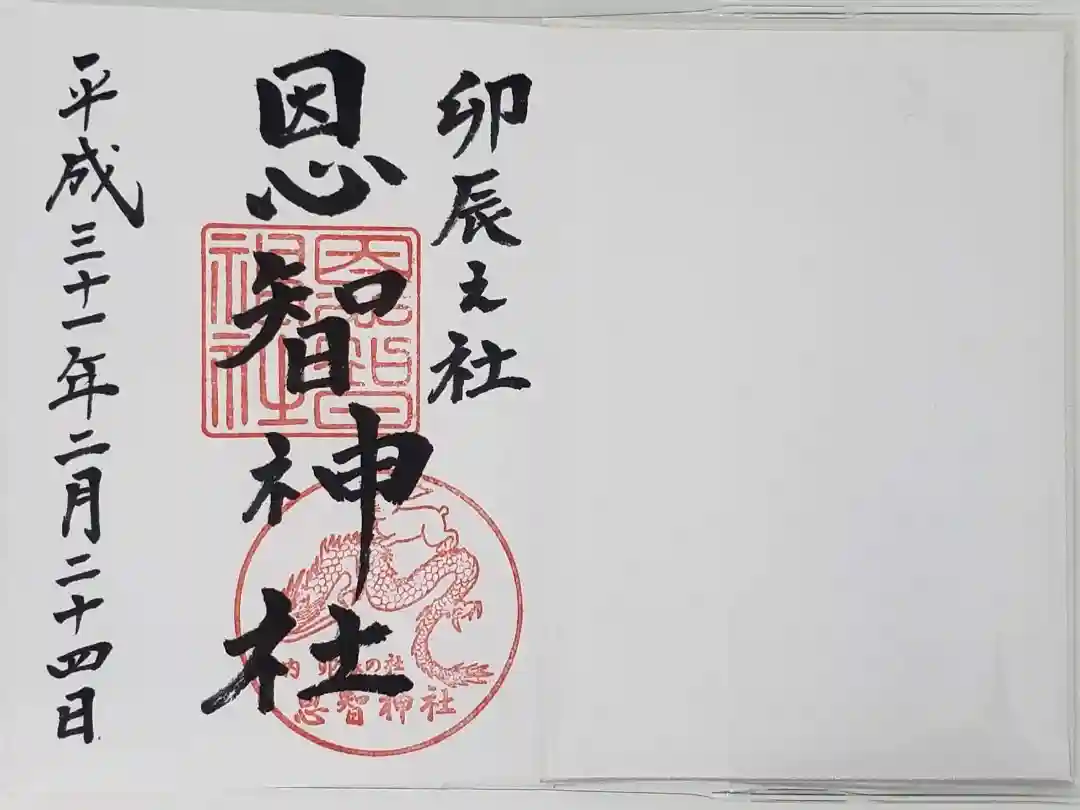 卯辰之社
恩智神社
平成三十一年二月二十四日
恩智神社
内 卯辰の社
恩智神社